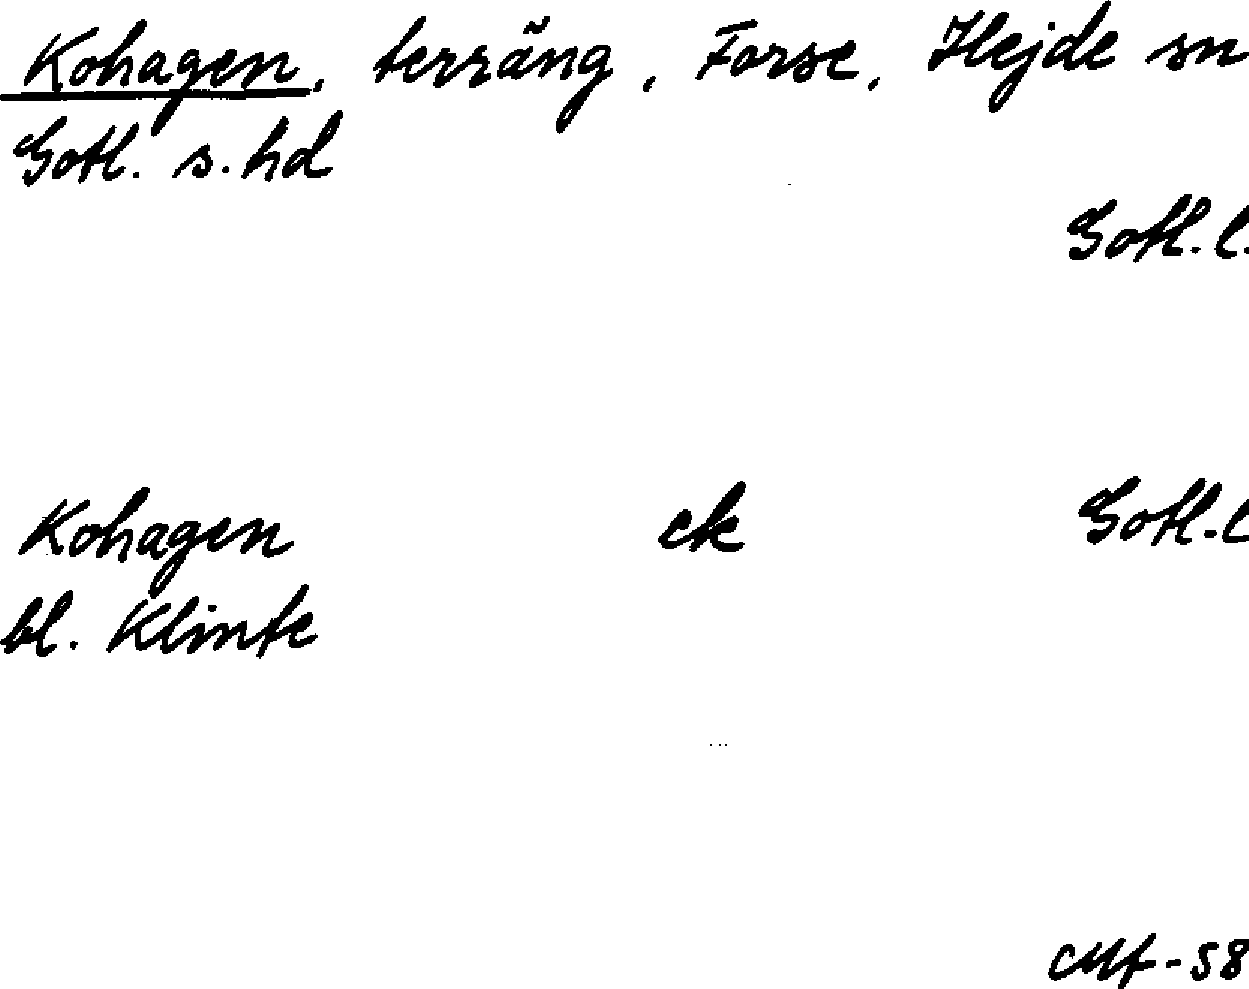 Kohagen, terräng, Forse, Hejde sn
Gotl. s. hd
Gotl. l.
Kohagen ek Gotl. l
bl. Klinte
Mf-58